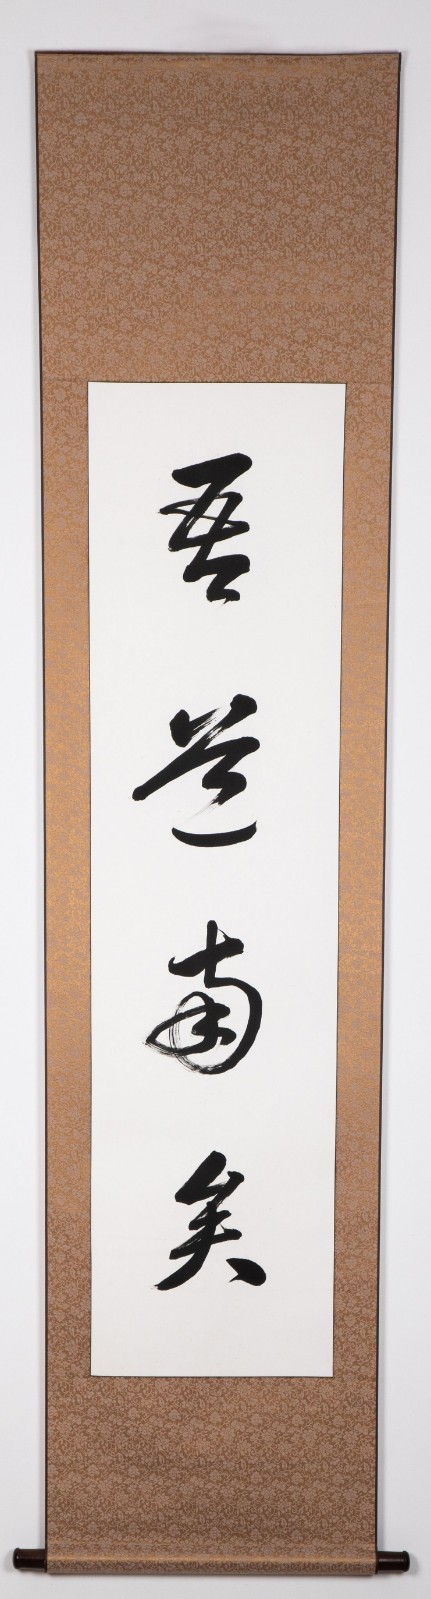 吾道南矣